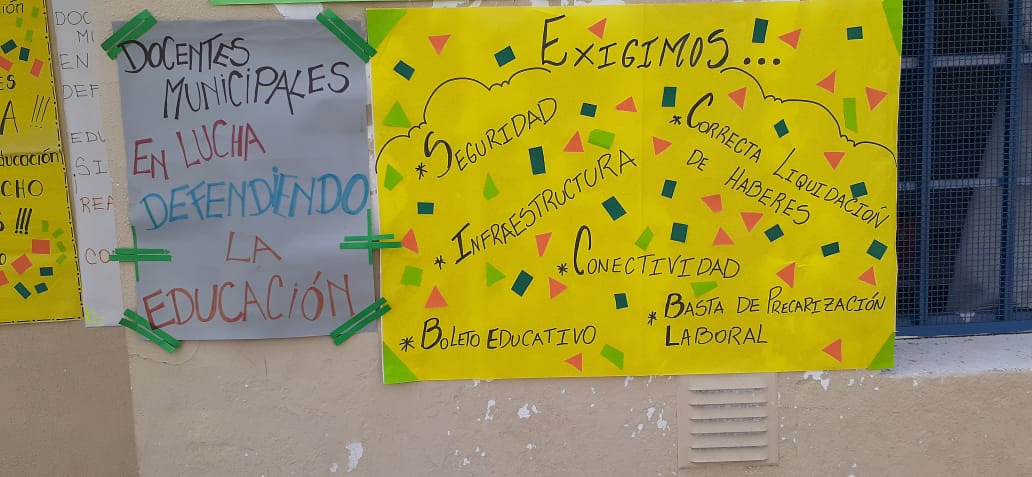 ción
ES
A !!!
ducación
CHO
S !!!
DOC
MI
EN
DEF
EDU
SI
REA
CO
DOCENTES
MUNICIPALES
EN LUCHA
DEFENDIENDO
LA
EDUCACIÓN
EXIGIMOS...
* SEGURIDAD
* INFRAESTRUCTURA
* CONECTIVIDAD
* BOLETO EDUCATIVO
* CORRECTA LIQUIDACIÓN
DE HABERES
* BASTA DE PRECARIZACIÓN
LABORAL